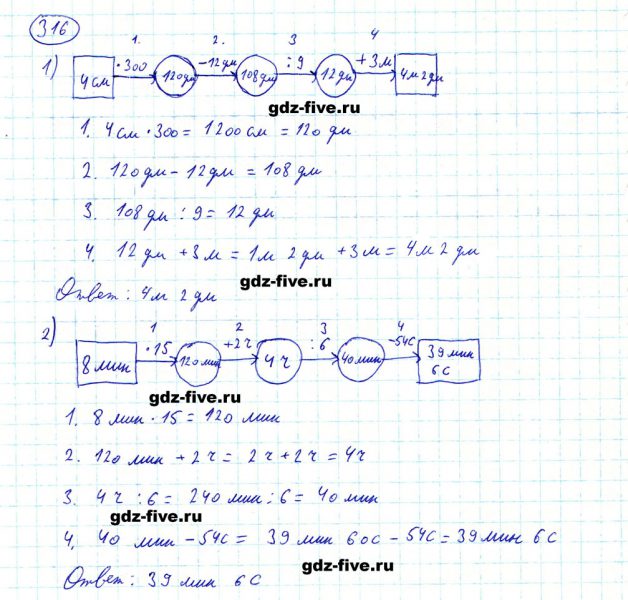 316
1. 2. 3 4
1) 4 см ·300 120 дм −12 дм 108 дм :9 12 дм +3 м 4 м 2 дм
gdz-five.ru
1. 4 см · 300 = 1200 см = 120 дм
2. 120 дм − 12 дм = 108 дм
3. 108 дм : 9 = 12 дм
4. 12 дм + 3 м = 1 м 2 дм + 3 м = 4 м 2 дм
gdz-five.ru
Ответ: 4 м 2 дм
gdz-five.ru
1 2 3 4
2) 8 мин ·15 120 мин +2 ч 4 ч :6 40 мин −54с 39 мин 6 с
gdz-five.ru
1. 8 мин · 15 = 120 мин
2. 120 мин + 2 ч = 2 ч + 2 ч = 4 ч
3. 4 ч : 6 = 240 мин : 6 = 40 мин
gdz-five.ru
4. 40 мин − 54с = 39 мин 60с − 54с = 39 мин 6 с
gdz-five.ru
Ответ: 39 мин 6 с